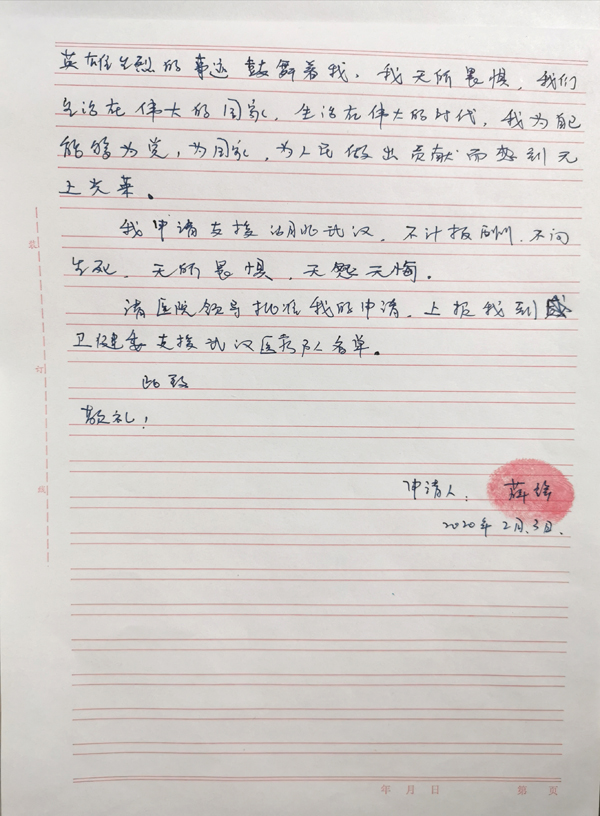 英雄先烈的事迹鼓舞着我，我无所畏惧，我们
生活在伟大的国家，生活在伟大的时代，我为自己
能够为党，为国家，为人民做出贡献而感到无
上光荣。
我申请支援湖北武汉，不计报酬，不问
生死，无所畏惧，无怨无悔。
请医院领导批准我的申请，上报我到
卫健委支援武汉医疗队名单。
此致
敬礼！
申请人：薛
2020年2月3日.
装
订
线
年 月 日 第 页